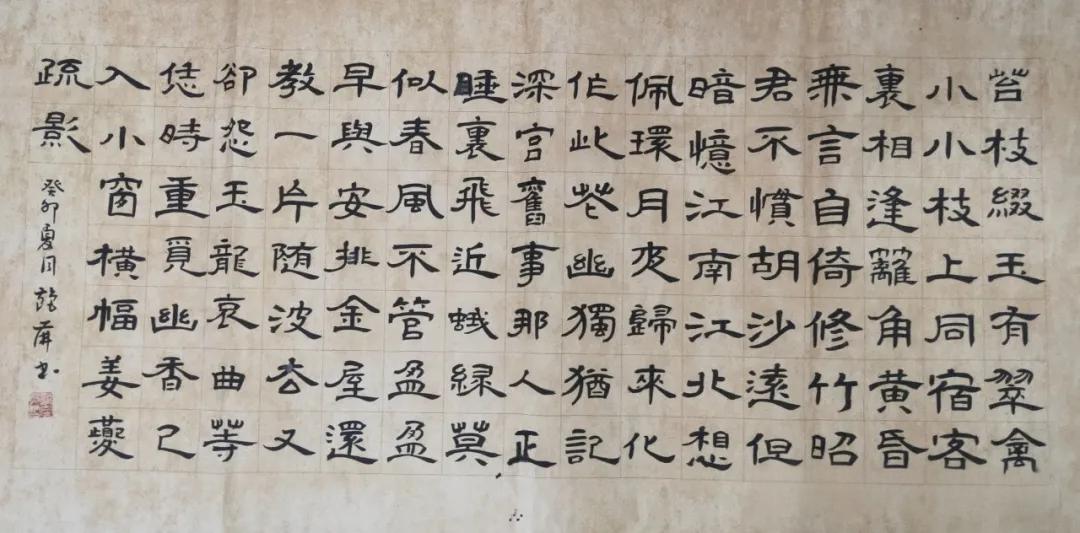 苔枝綴玉有翠禽
小小枝上同宿客
裏相逢籬角黃昏
無言自倚修竹昭
君不慣胡沙遠但
暗憶江南江北想
佩環月夜歸來化
作此花幽獨猶記
深宮舊事那人正
睡裏飛近蛾綠莫
似春風不管盈盈
早與安排金屋還
教一片随波去又
卻怨玉龍哀曲等
恁時重覓幽香已
入小窗橫幅姜夔
疏影
癸卯夏月 书